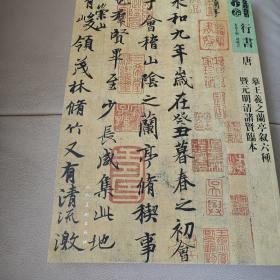 行書
唐
摹王羲之蘭亭叙六種
暨元明清諸賢臨本
永和九年歲在癸丑暮春之初會
會稽山陰之蘭亭脩稧事
群賢畢至少長咸集此地
崇山
有峻領茂林脩竹又有清流激